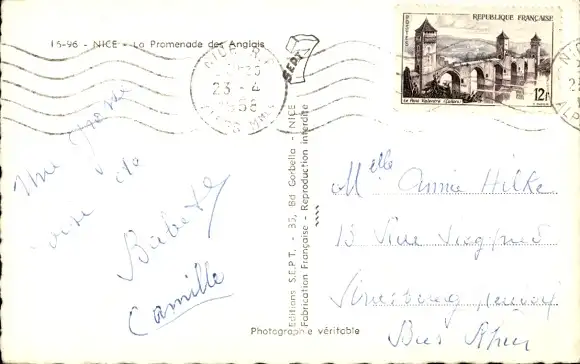 15-96 - NICE - La Promenade des Anglais
NICE R.P.
23 - 4
1958
SEPT
RÉPUBLIQUE FRANÇAISE
POSTES
Le Pont Valentré (Cahors)
12F
Une grosse
bise de
Babeth
Camille
Editions S.E.P.T. - 35, Bd Gorbella - NICE
Fabrication Française - Reproduction interdite
Photographie véritable
Melle Annie Hilke
13 Rue
Strasbourg
Bas Rhin